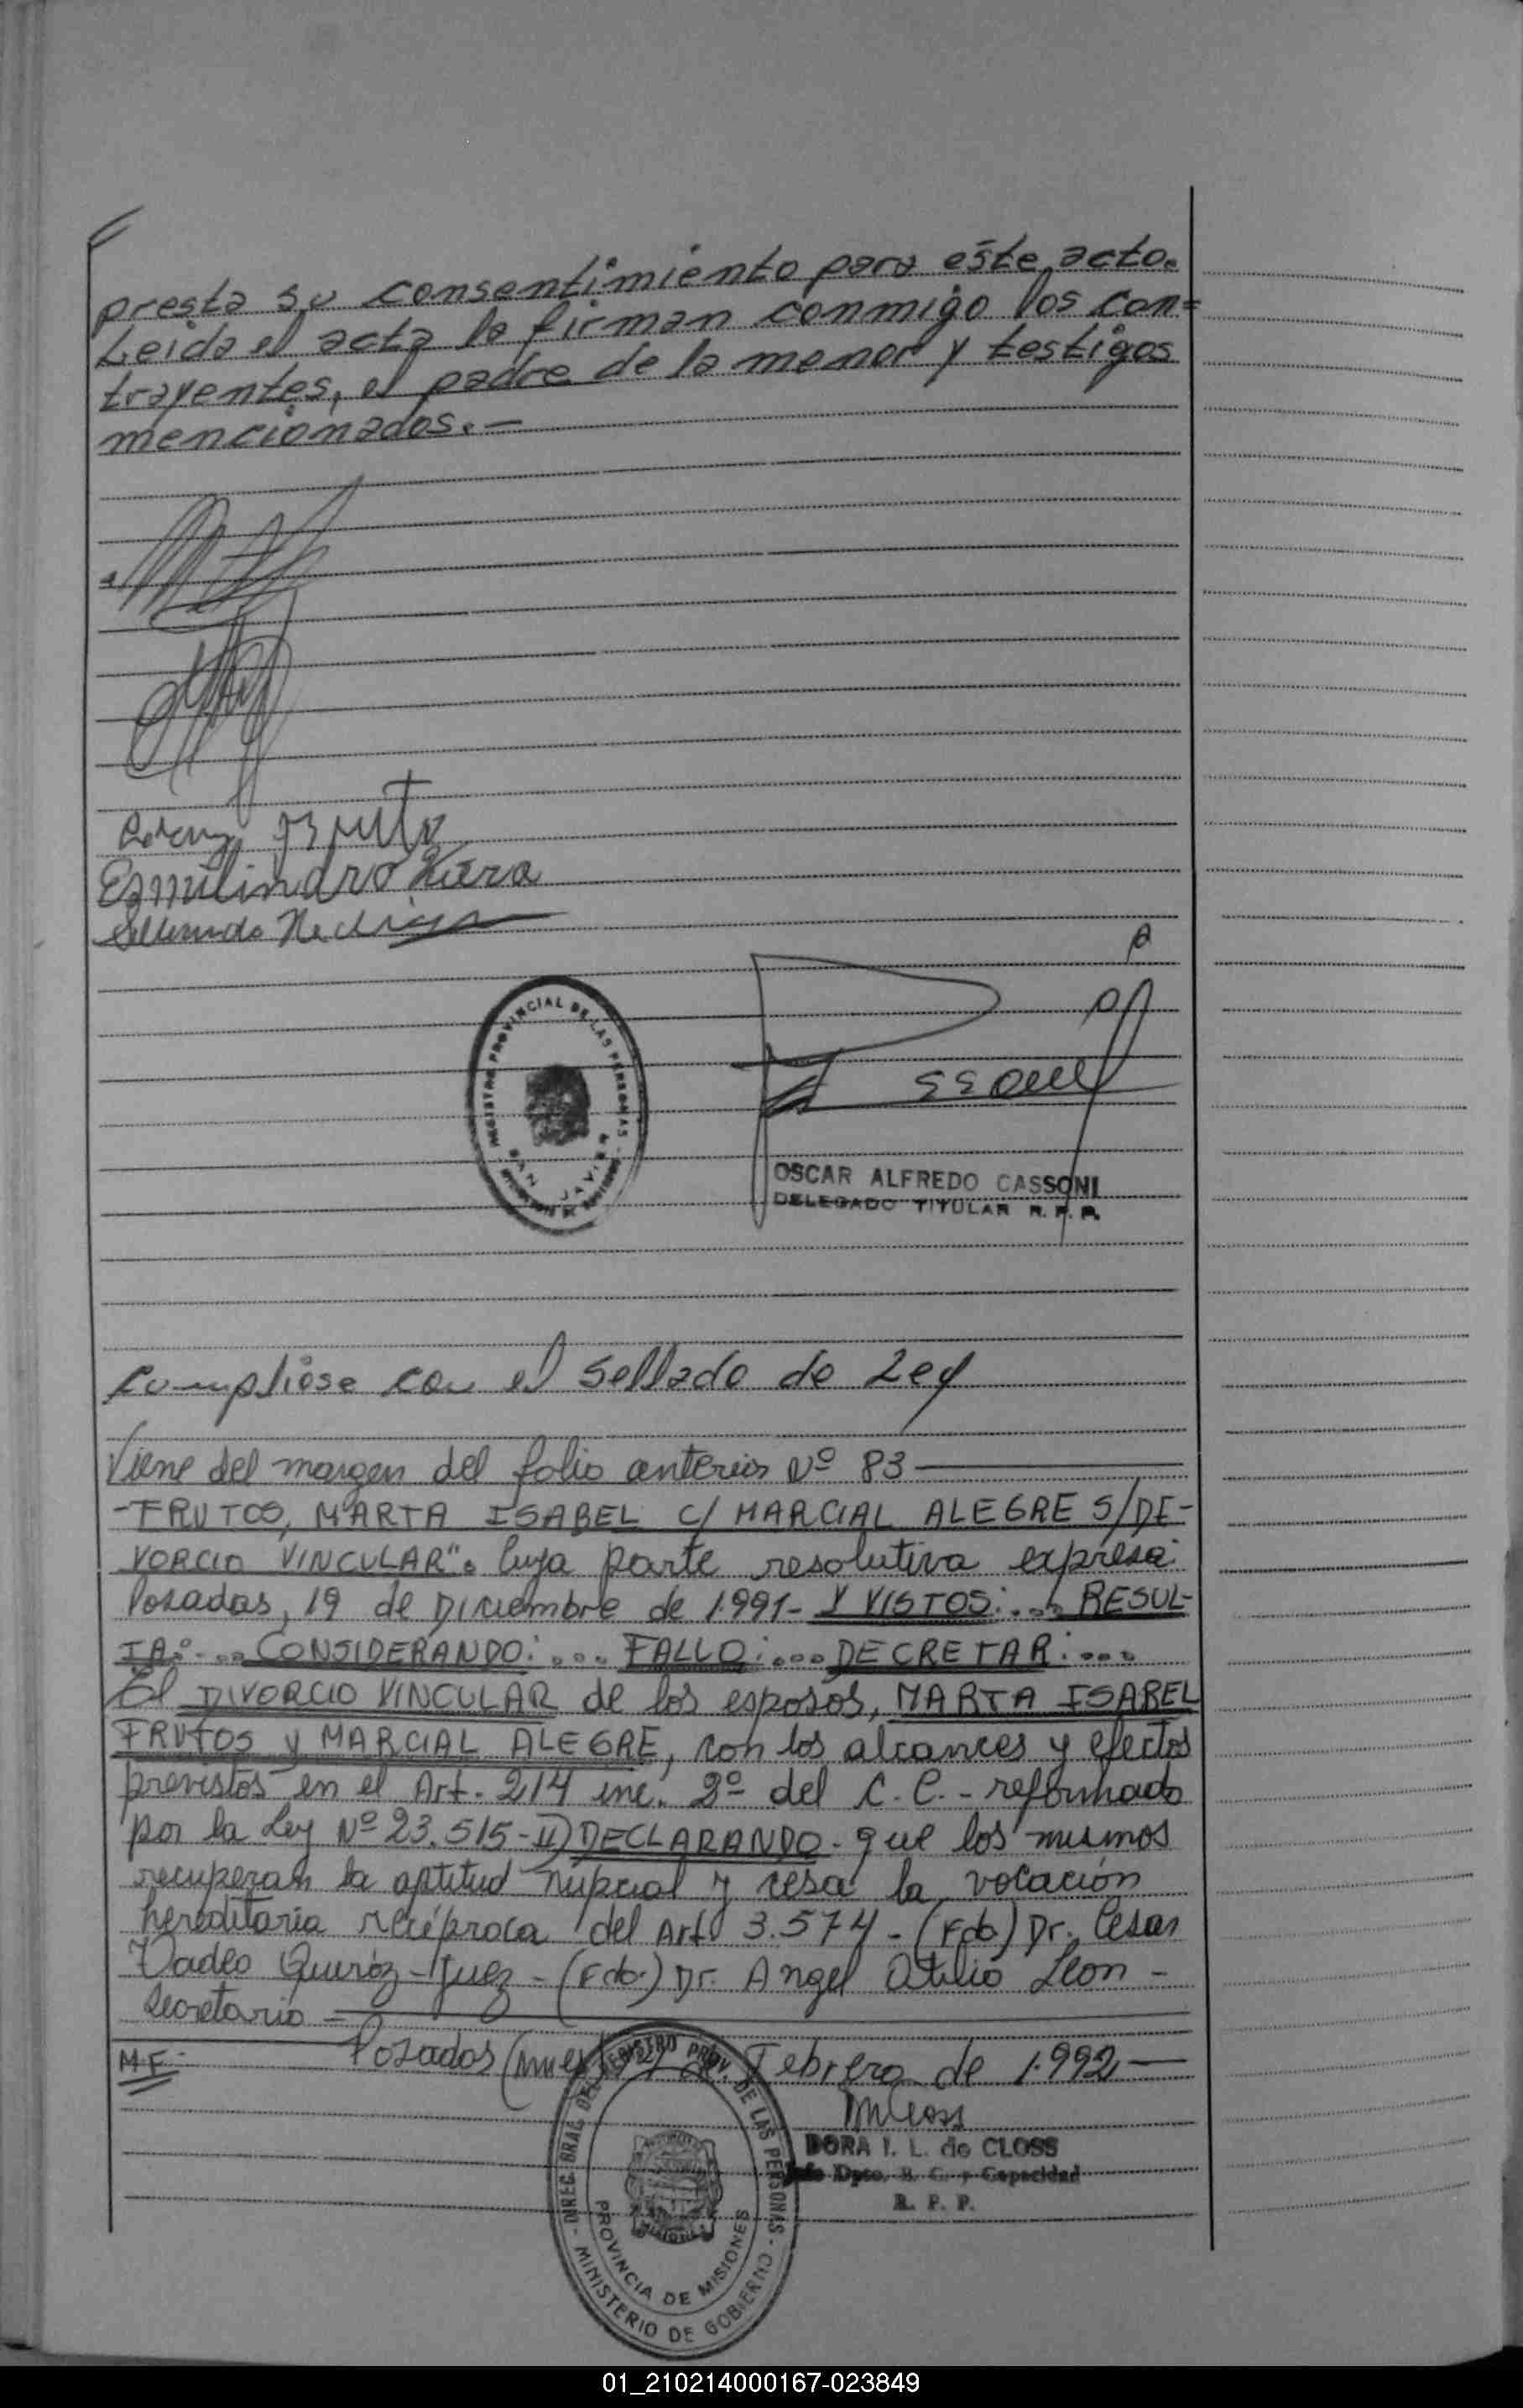 presta su consentimiento para este acto.
Leida el acta la firman conmigo los con=
trayentes, el padre de la menor y testigos
mencionados.—
Esmilindro Viera
REGISTRO PROVINCIAL DE LAS PERSONAS
SAN JAVIER
OSCAR ALFREDO CASSONI
DELEGADO TITULAR R. P. P.
Cumpliose con el sellado de Ley
Viene del margen del folio anterior Nº 83
-FRUTOS, MARTA ISABEL C/ MARCIAL ALEGRE S/DI-
VORCIO VINCULAR". Cuya parte resolutiva expresa:
Posadas, 19 de Diciembre de 1.991- Y VISTOS:.... RESUL-
TA:.... CONSIDERANDO:.... FALLO:.... DECRETAR:....
El DIVORCIO VINCULAR de los esposos, MARTA ISABEL
FRUTOS y MARCIAL ALEGRE, con los alcances y efectos
previstos en el Art. 214 inc. 2º del C.C.- reformado
por la Ley Nº 23.515-II) DECLARANDO- que los mismos
recuperan la aptitud nupcial y cesa la vocación
hereditaria recíproca del Art 3.574-(Fdo) Dr. Cesar
Tadeo Quiróz-Juez-(Fdo.) Dr. Angel Atilio Leon-
Secretario-
M.F. Posadas (Mnes) de Febrero de 1.992—
DORA I. L. de CLOSS
Jefe Dpto. E. C. y Capacidad
R. P. P.
DIREC. GRAL. DEL REGISTRO PROV. DE LAS PERSONAS - MINISTERIO DE GOBIERNO -
PROVINCIA DE MISIONES
01_210214000167-023849